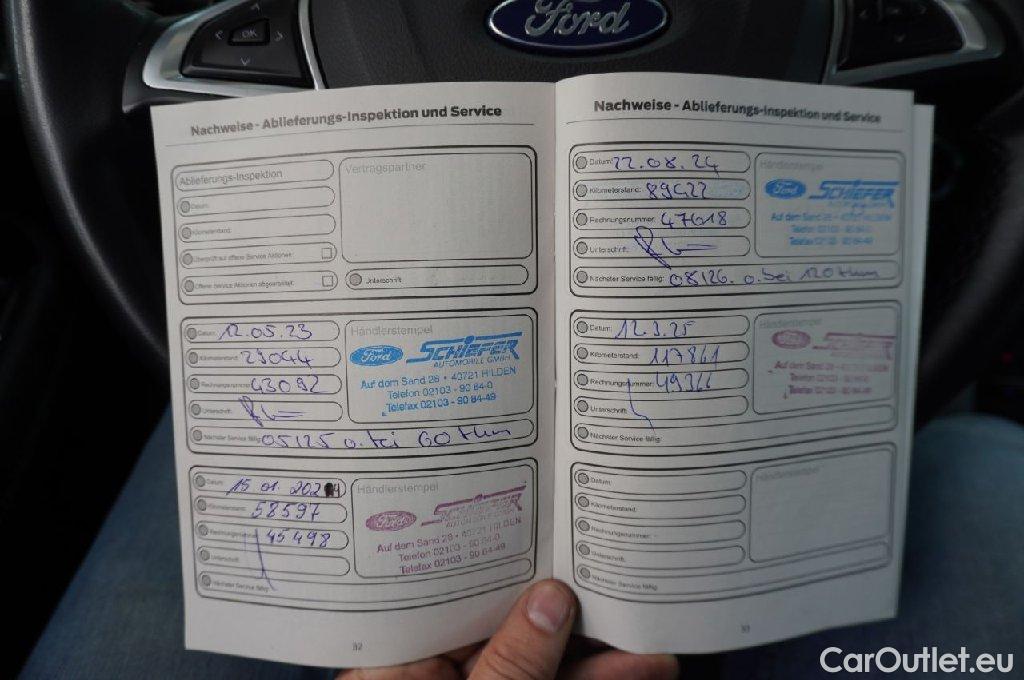 OK
Ford
Nachweise - Ablieferungs-Inspektion und Service
Ablieferungs-Inspektion
Datum:
Kilometerstand:
Überprüft auf offene Service Aktionen:
Offene Service Aktionen abgearbeitet:
Vertragspartner
Unterschrift
Datum: 12.05.23
Kilometerstand: 29044
Rechnungsnummer: 43092
Unterschrift:
Nächster Service fällig: 05/25 o. bei 60 tkm
Händlerstempel
Ford SCHIEFER
AUTOMOBILE GMBH
Auf dem Sand 28 • 40721 HILDEN
Telefon 02103 - 90 84-0
Telefax 02103 - 90 84-49
Datum: 15 01. 2024
Kilometerstand: 58597
Rechnungsnummer: 45498
Unterschrift:
Nächster Service fällig:
Händlerstempel
Ford SCHIEFER
AUTOMOBILE GMBH
Auf dem Sand 28 • 40721 HILDEN
Telefon 02103 - 90 84-0
Telefax 02103 - 90 84-49
32
Nachweise - Ablieferungs-Inspektion und Service
Datum: 22.08.24
Kilometerstand:
Rechnungsnummer: 47618
Unterschrift:
Nächster Service fällig: 08/26. o. bei 120 tkm
Händlerstempel
Ford SCHIEFER
AUTOMOBILE GMBH
Auf dem Sand 28 • 40721 HILDEN
Telefon 02103 - 90 84-0
Telefax 02103 - 90 84-49
Datum: 12.9.25
Kilometerstand: 117861
Rechnungsnummer: 49366
Unterschrift:
Nächster Service fällig:
Händlerstempel
Datum:
Kilometerstand:
Rechnungsnummer:
Unterschrift:
Nächster Service fällig:
Händlerstempel
33
CarOutlet.eu